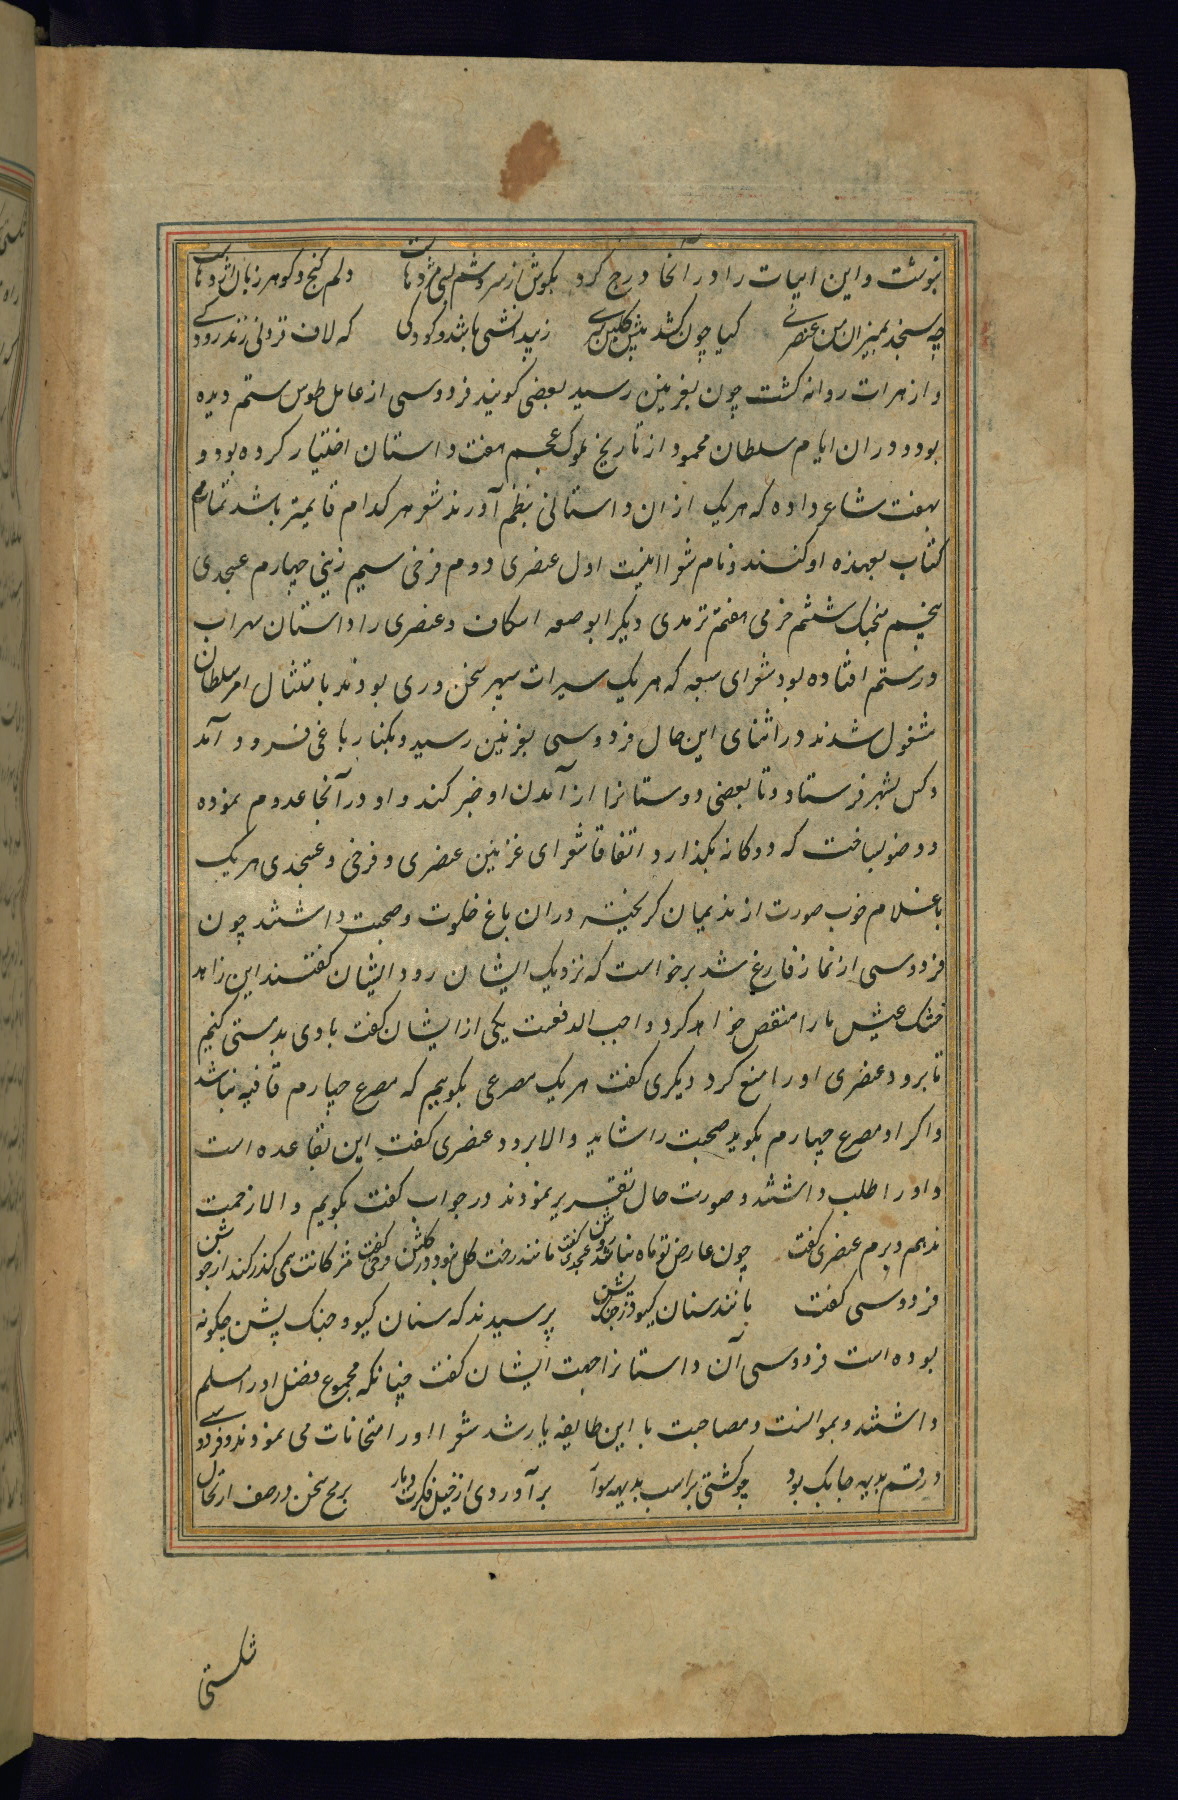 نوشت و این ابیات را در آنجا درج کرد بکوش از سروشم بسی مژدهاست دلم کنج و کوهر زبان اژدهاست
چه سنجد بمیزان من عنصری کیا چون کشد پیش کلبن سری ز بیدانشی باشد و کودکی که لاف فزونی زند رودکی
و از هرات روانه کشت چون بغزنین رسید بعضی کویند فردوسی از عامل طوس ستم دیده
بود و دران ایام سلطان محمود از تاریخ ملوک عجم هفت داستان اختیار کرده بود و
بهفت شاعر داده که هر یک ازان داستانی بنظم آورند شعر هر کدام قایمتر باشد تمام
کتاب بعهده او کنند و نام شعرا اینست اول عنصری دوم فرخی سیم زینی چهارم عسجدی
پنجم منجیک ششم خرمی هفتم ترمدی دیکر ابو اسکاف و عنصری را داستان سهراب
و رستم افتاده بود شعرای سبعه که هر یک سپهر سخن وری بودند بامتثال امر سلطان
مشغول شدند در اثنای این حال فردوسی بغزنین رسید و بکنار باغی فرود آمد
و کس بشهر فرستاد و تا بعضی دوستانرا از آمدن او خبر کند و او در آنجا نموده
و وضو بساخت که دوکانه بکذارد اتفاقا شعرای غزنین عنصری و فرخی و عسجدی هر یک
با غلام خوب صورت از ندیمان کریخته دران باغ خلوت و صحبت داشتند چون
فردوسی از نماز فارغ شد برخواست که نزدیک ایشان رود ایشان کفتند این زاهد
خشک عیش ما را منقص خواهد کرد و اجب الدفعست یکی از ایشان کفت با وی بدمستی کنیم
تا برود عنصری او را منع کرد دیکری کفت هر یک مصرعی بکوییم که مصرع چهارم قافیه نباشد
و اکر او مصرع چهارم بکوید صحبت را شاید و الا برود عنصری کفت این بقاعده است
و او را طلب داشتند و صورت حال تقریر نمودند در جواب کفت بکویم و الا زحمت
ندهم و بروم عنصری کفت چون عارض تو ماه نباشد روشن عسجدی کفت مانند رخت کل نبود در کلشن فرخی کفت مژکانت همی کذر کند از جوشن
فردوسی کفت مانند سنان کیو در جنک پشن پرسیدند که سنان کیو و جنک پشن چکونه
بوده است فردوسی آن داستانرا جهت ایشان کفت چنانکه مجموع فضل او را مسلم
داشتند و بموانست و مصاحبت با این طایفه یار شد شعرا او را امتحانات می نمودند و فردوسی
در قسم بدیهه چابک بود چو کشتی براسب بدیهه سوار برآوردی از خیل فکرت دمار برمح سخن در صف ارتجال
شکستی